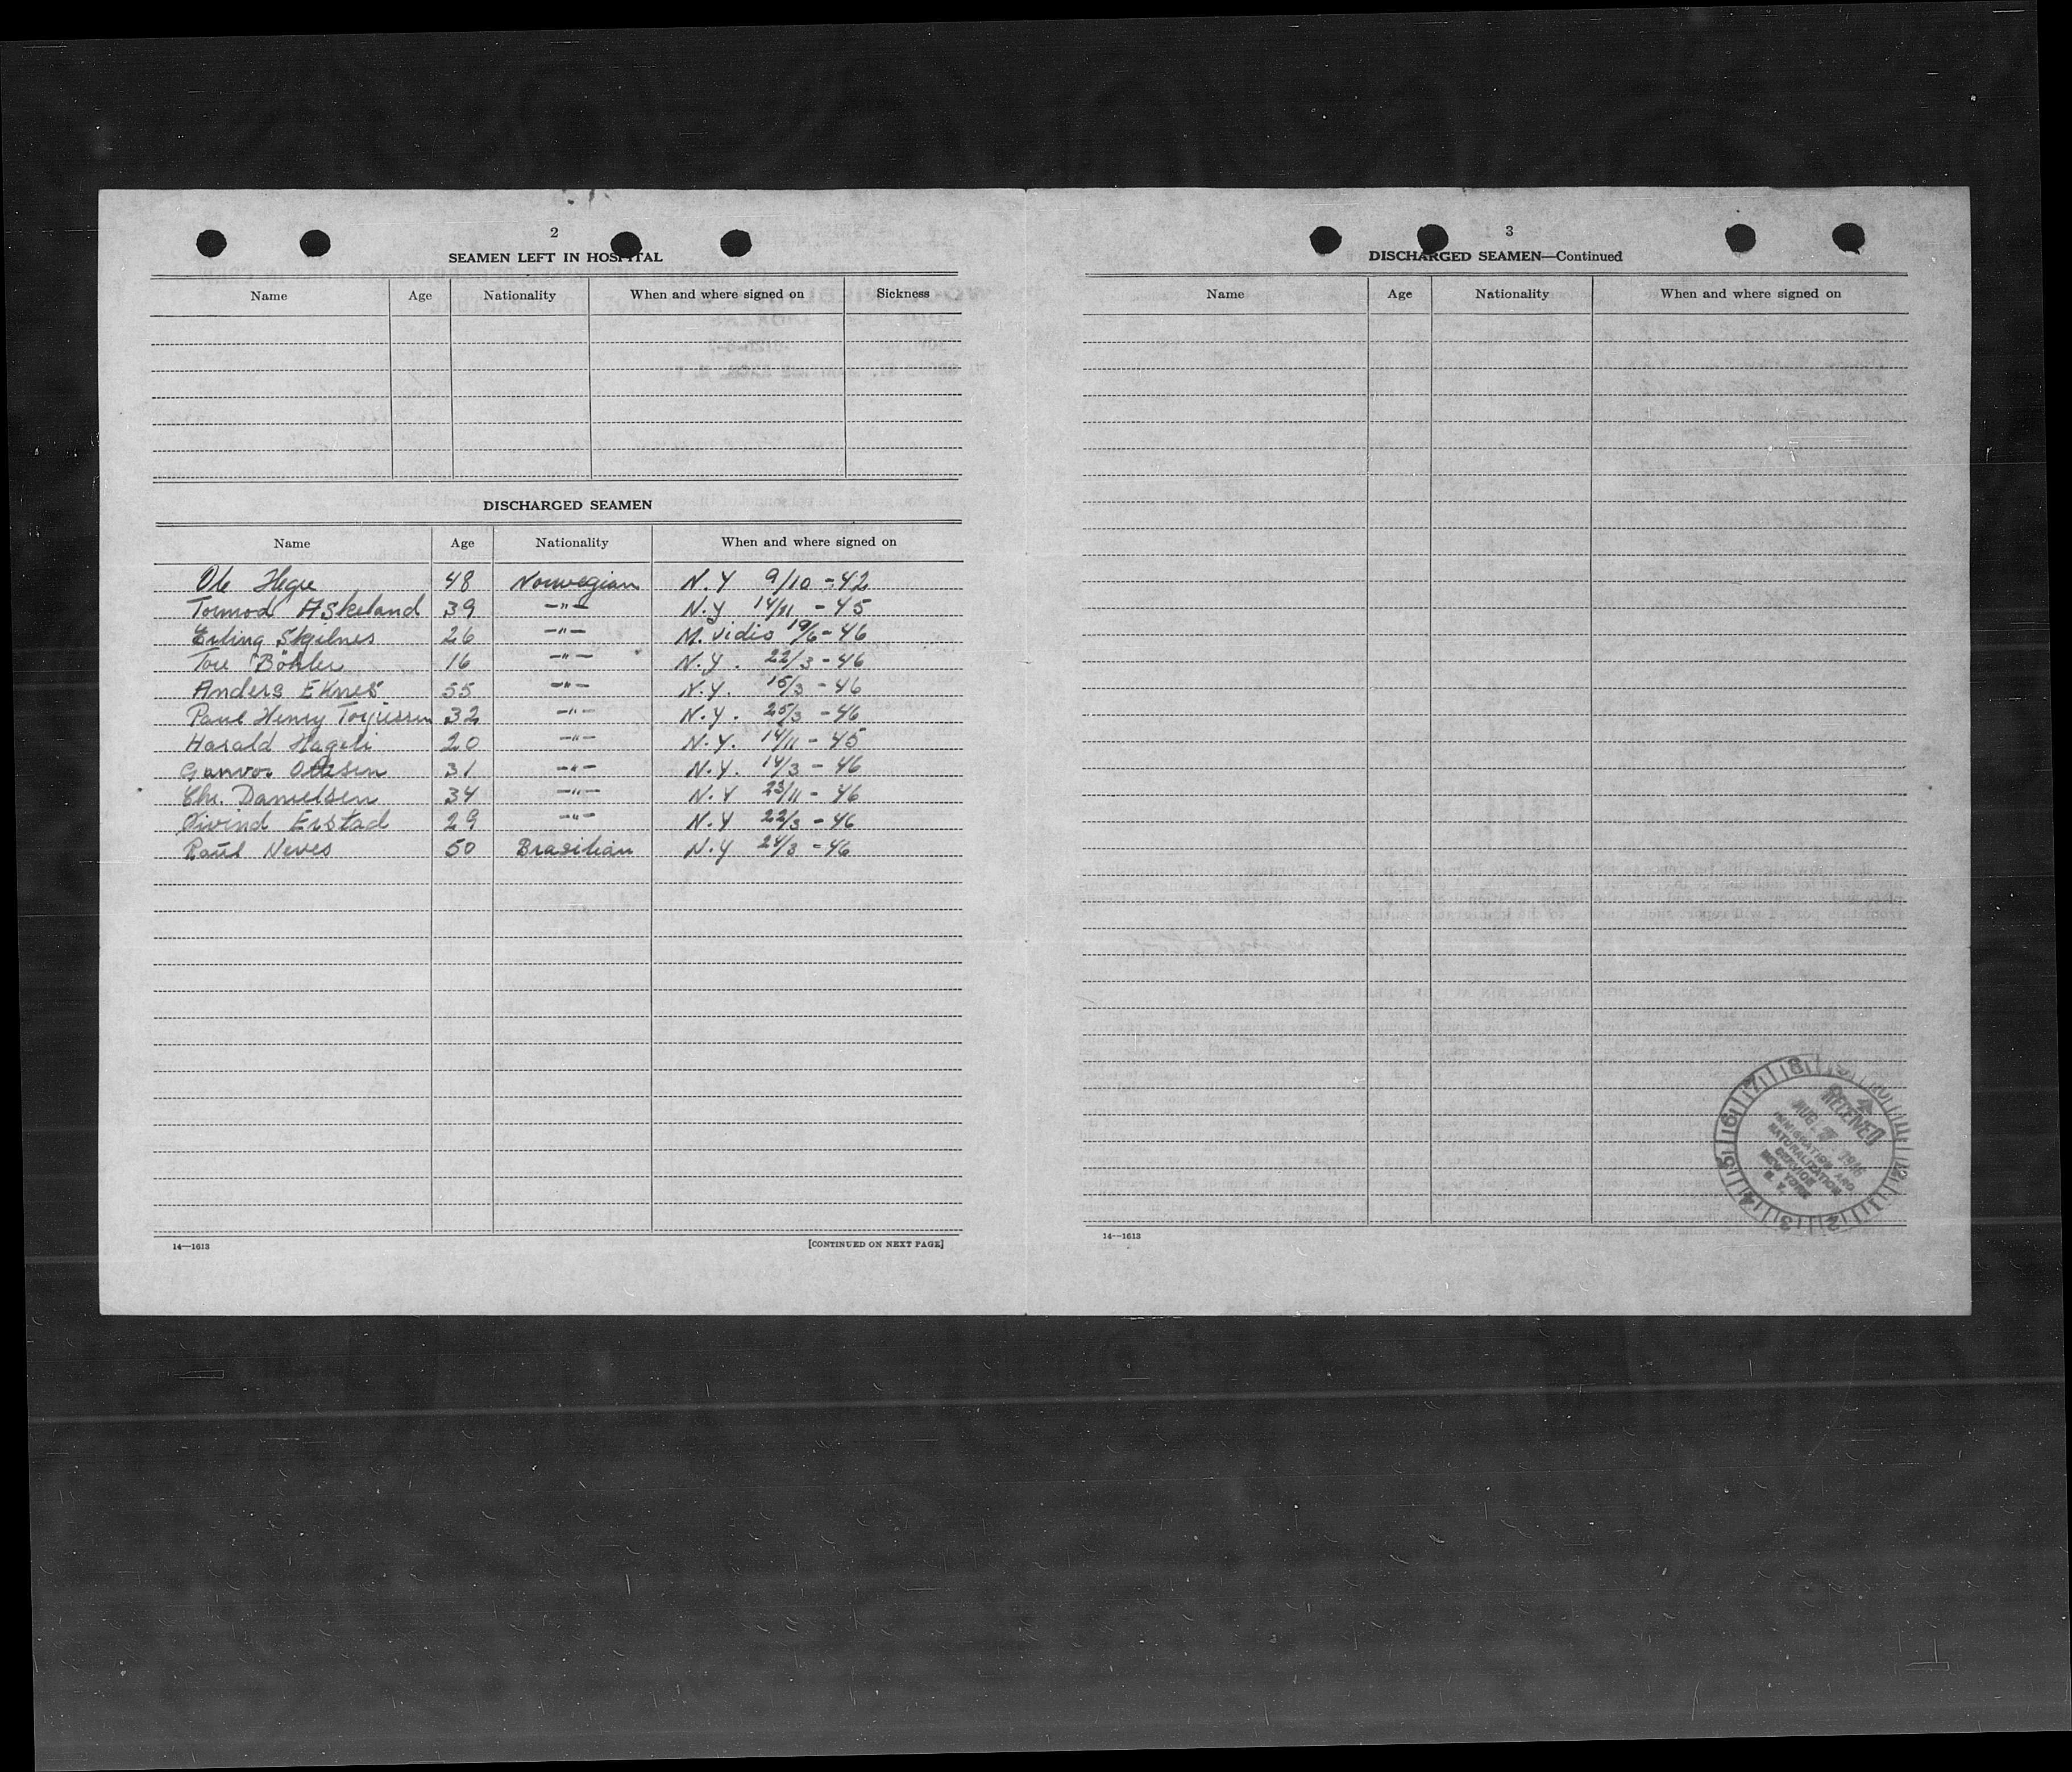 2
SEAMEN LEFT IN HOSPITAL
Name Age Nationality When and where signed on Sickness
DISCHARGED SEAMEN
Name Age Nationality When and where signed on
Ole Hegre 48 Norwegian N.Y 9/10 - 42
Tormod Askeland 39 -"- N.Y 14/11 - 45
Erling Skjelnes 26 -"- M. vidio 19/6 - 46
Tore Böhler 16 -"- N.Y. 22/3 - 46
Anders Eknes 55 -"- N.Y. 15/3 - 46
Paul Henry Torjussen 32 -"- N.Y. 25/3 - 46
Harald Hageli 20 -"- N.Y. 14/11 - 45
Gunvor Ottesen 31 -"- N.Y. 14/3 - 46
Chr. Danielsen 34 -"- N.Y 23/11 - 46
Øivind Erstad 29 -"- N.Y 22/3 - 46
Raúl Neves 50 Brasilian N.Y 24/3 - 46
14—1613 [CONTINUED ON NEXT PAGE]
3
DISCHARGED SEAMEN—Continued
Name Age Nationality When and where signed on
RECEIVED
AUG 1946
IMMIGRATION AND
NATURALIZATION
SERVICE
NEW YORK
N. Y.
14—1613